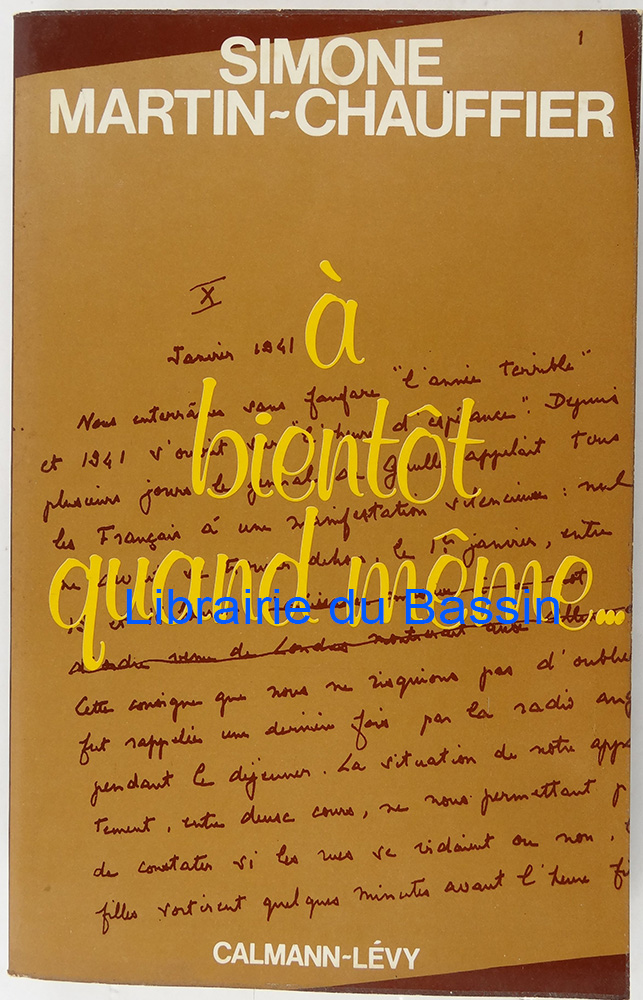 1
SIMONE
MARTIN~CHAUFFIER
X
Janvier 1941
à
Nous enterrâmes sans fanfare "l'année terrible"
et 1941 s'ouvrit sur "l'heure d'espérance". Depuis
bientôt
plusieurs jours le général de Gaulle appelait tous
les Français à une manifestation silencieuse : nul
ne devait se trouver dehors, le 1er janvier, entre
quand même...
Librairie du Bassin
d'ordre venu de Londres montrerait aux
Cette consigne que nous ne risquions pas d'oublie
fut rappelée une dernière fois par la radio ang
pendant le déjeuner. La situation de notre appa
tement, entre deux cours, ne nous permettant p
de constater si les rues se vidaient ou non,
filles sortirent quelques minutes avant l'heure fi
CALMANN~LÉVY